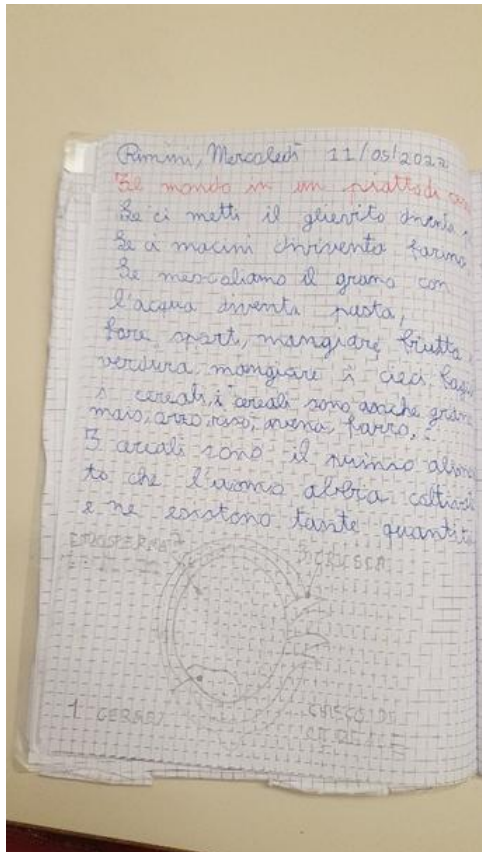 Rimini, Mercoledì 11/05/2022
Il mondo in un piatto di
Se ci metti il glievito
Se ci macini divventa farina
Se mescoliamo il grano con
l'acqua diventa pasta,
fare sport, mangiare frutta,
verdura, mangiare i ceci,
i cereali, i cereali sono anche grano
mais, orzo, riso, avena, farro...
I cereali sono il primo alimen
to che l'uomo abbia coltivato
e ne esistono tante quantità
2
3 CRUSCA
1 GERME
CHICCO DI
CEREALE